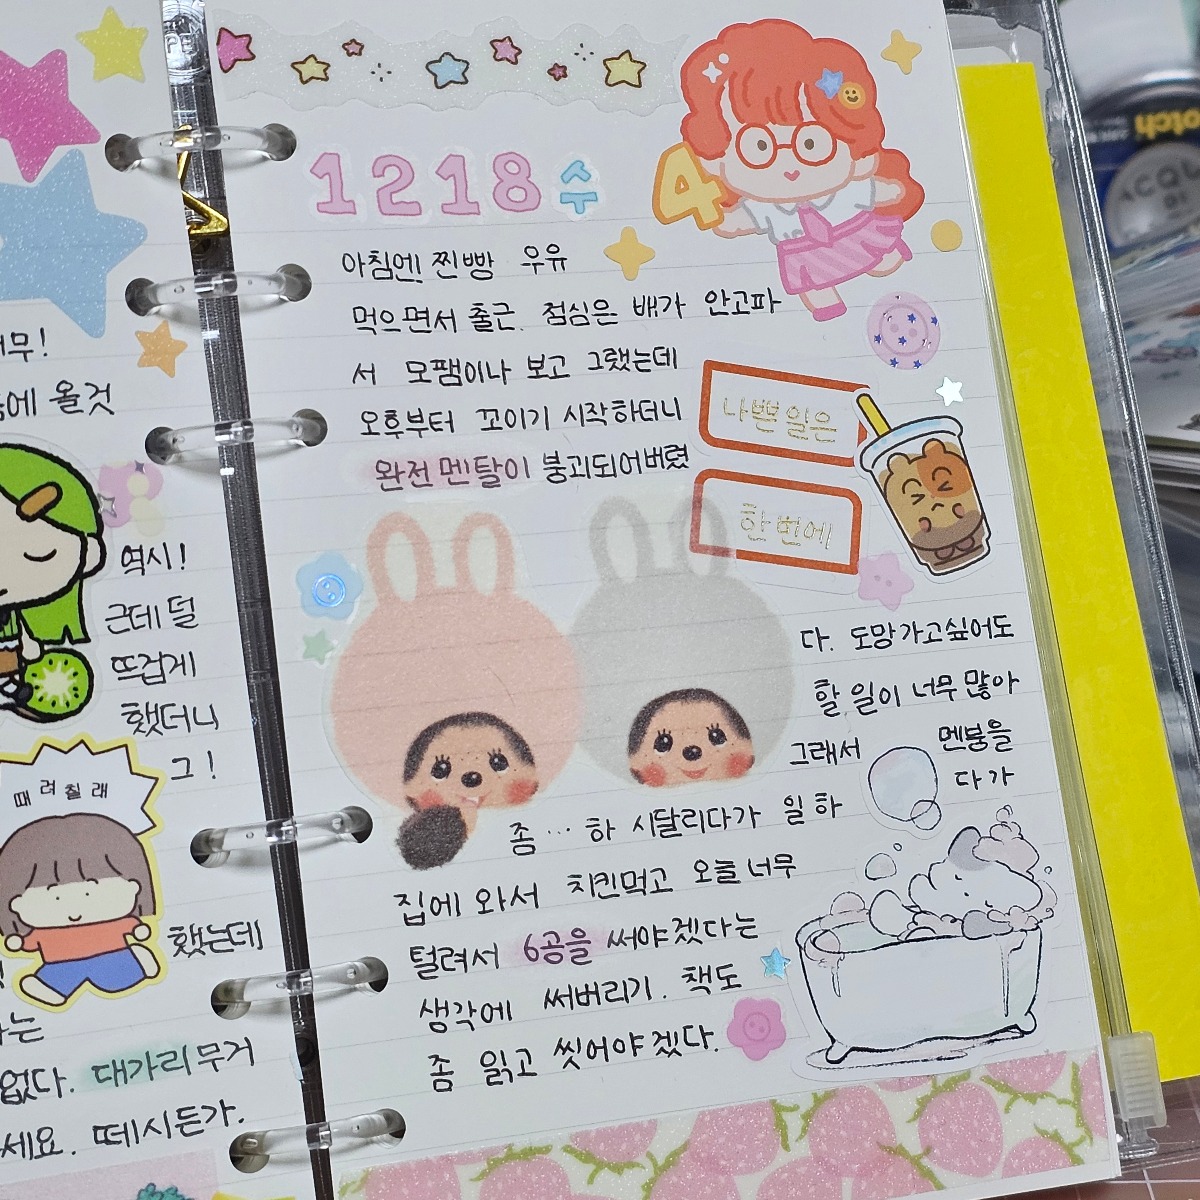 무!
에 올것
역시!
근데 덜
뜨겁게
했더니
그!
때려칠래
했는데
는
없다. 대가리 무거
세요. 떼시든가.
1218 수
4
아침엔 찐빵 우유
먹으면서 출근. 점심은 배가 안고파
서 모팸이나 보고 그랬는데
오후부터 꼬이기 시작하더니
완전 멘탈이 붕괴되어버렸
나쁜일은
한번에
다. 도망가고싶어도
할 일이 너무 많아
그래서 멘붕을
다가
좀··· 하 시달리다가 일 하
집에 와서 치킨먹고 오늘 너무
털려서 6공을 써야겠다는
생각에 써버리기. 책도
좀 읽고 씻어야겠다.
Scotch